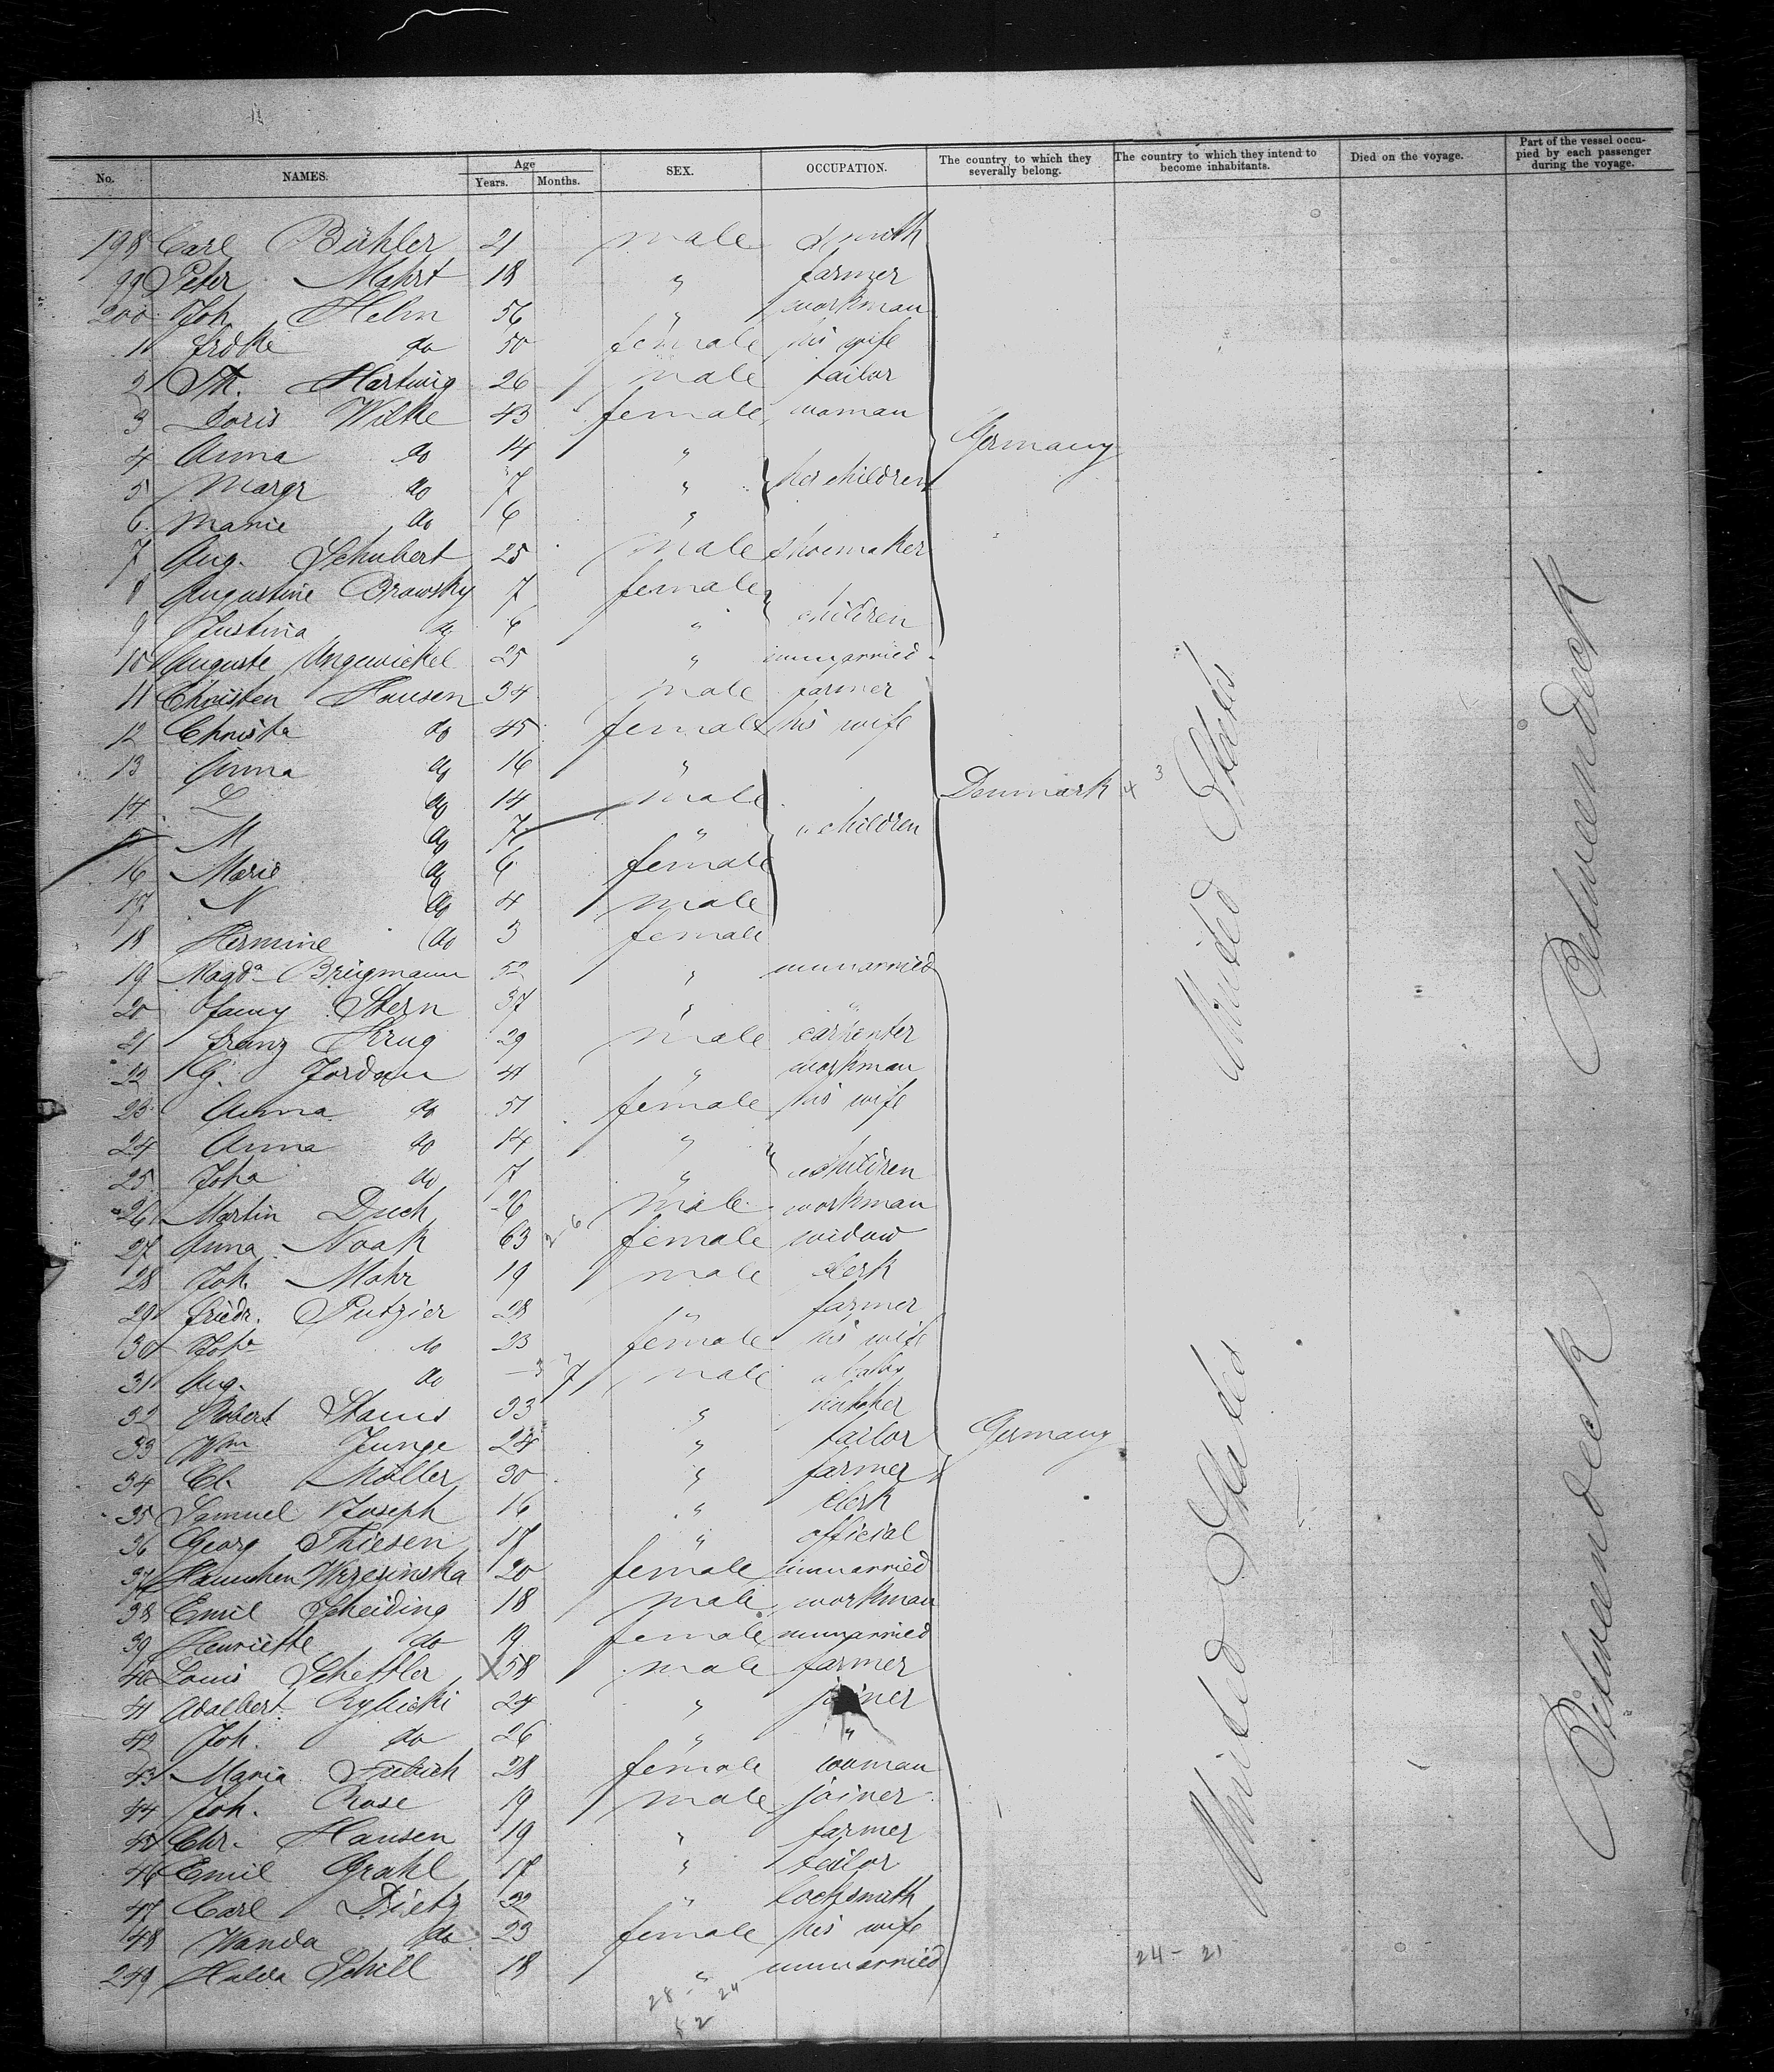 No. NAMES. Age Years. Months. SEX. OCCUPATION. The country to which they severally belong. The country to which they intend to become inhabitants. Died on the voyage. Part of the vessel occupied by each passenger during the voyage.
198 Carl Bühler 21 male smith
99 Peter Mahrt 18 " farmer
200 Joh. Helm 56 " workman
1 Frdke do 50 female his wife
2 Th. Hartwig 26 male tailor
3 Doris Wilke 43 female woman
4 Anna do 14 " Germany
5 Margr do 7 " her children
6 Marie do 6 "
7 Aug. Schubert 25 male shoemaker
8 Augustine Browsky 7 female
9 Justina do 6 " children
10 Auguste Ungewickel 25 " unmarried
11 Christen Hansen 34 male farmer
12 Christe do 45 female his wife
13 Anna do 16 "
14 L do 14 male Denmark
15 M do 7 " " children
16 Marie do 6 female
17 N do 4 male
18 Hermine do 3 female
19 Magda Brügmann 52 " unmarried
20 Fanny Stern 37 " "
21 Franz Krug 29 male carpenter
22 Kg. Jordan 41 " workman
23 Anna do 51 female his wife
24 Anna do 14 "
25 Joha do 7 " children
26 Martin Duch male workman
27 Anna Noak 63 female widow
28 Joh. Mohr 19 male clerk
29 Friedr. Putzier 28 " farmer
30 Joha do 23 female his wife
31 Aug. do 7 male baby
32 Robert Stams 33 " butcher
33 Wm Junge 24 " tailor Germany
34 Cl. Möller 30 " farmer
35 Samuel Joseph 16 " clerk
36 Georg Thiesen 17 " official
37 Hannchen Wrzesinska 20 female unmarried
38 Emil Scheiding 18 male workman
39 Henriette do 19 female unmarried
40 Louis Scheffler 58 male farmer
41 Adalbert 24 " joiner
42 Joh. do 26 " "
43 Maria 28 female woman
44 Joh. Rose 19 male joiner
45 Chr. Hansen 19 " farmer
46 Emil Grahl 17 " tailor
47 Carl Dietz 22 " locksmith
48 Wanda do 23 female his wife
249 Hulda Schill 18 " unmarried
United States
United States
Betweendeck
Betweendeck
24 - 21
28 - 24
52